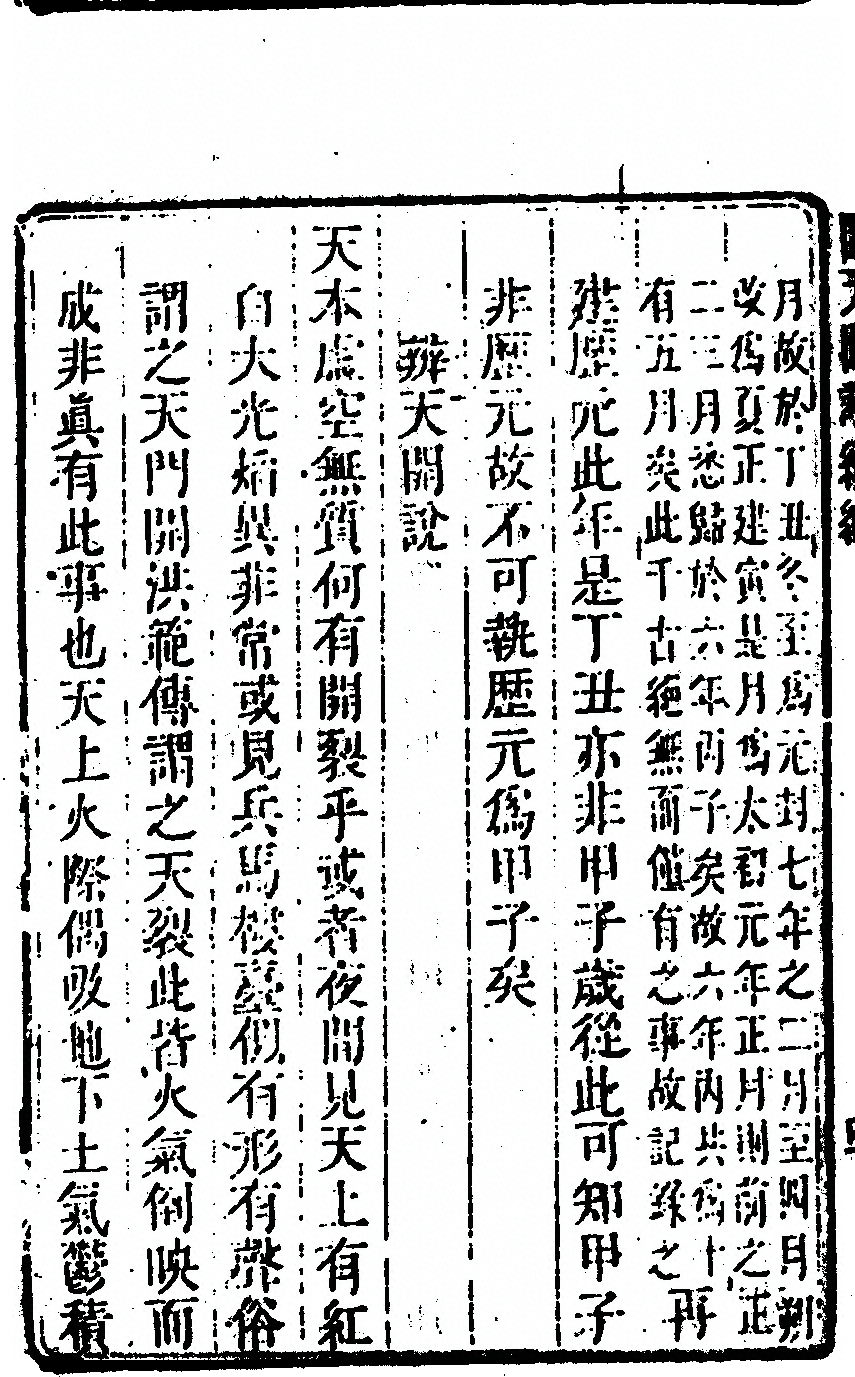 月故於丁丑冬至爲元封七年之二月至四月朔
改爲夏正建寅是月爲太初元年正月則前之正
二三月悉歸於六年丙子矣故六年內共爲十
有五月矣此千古絕無而僅有之事故記錄之再
建歷元此年是丁丑亦非甲子歲從此可知甲子
非歷元故不可執歷元爲甲子矣
辨天開說
天本虛空無質何有開裂乎或者夜間見天上有紅
白大光焰異非常或見兵馬樓臺似有形有聲俗
謂之天門開洪範傳謂之天裂此皆火氣倒映而
成非眞有此事也天上火際偶吸地下土氣鬱積